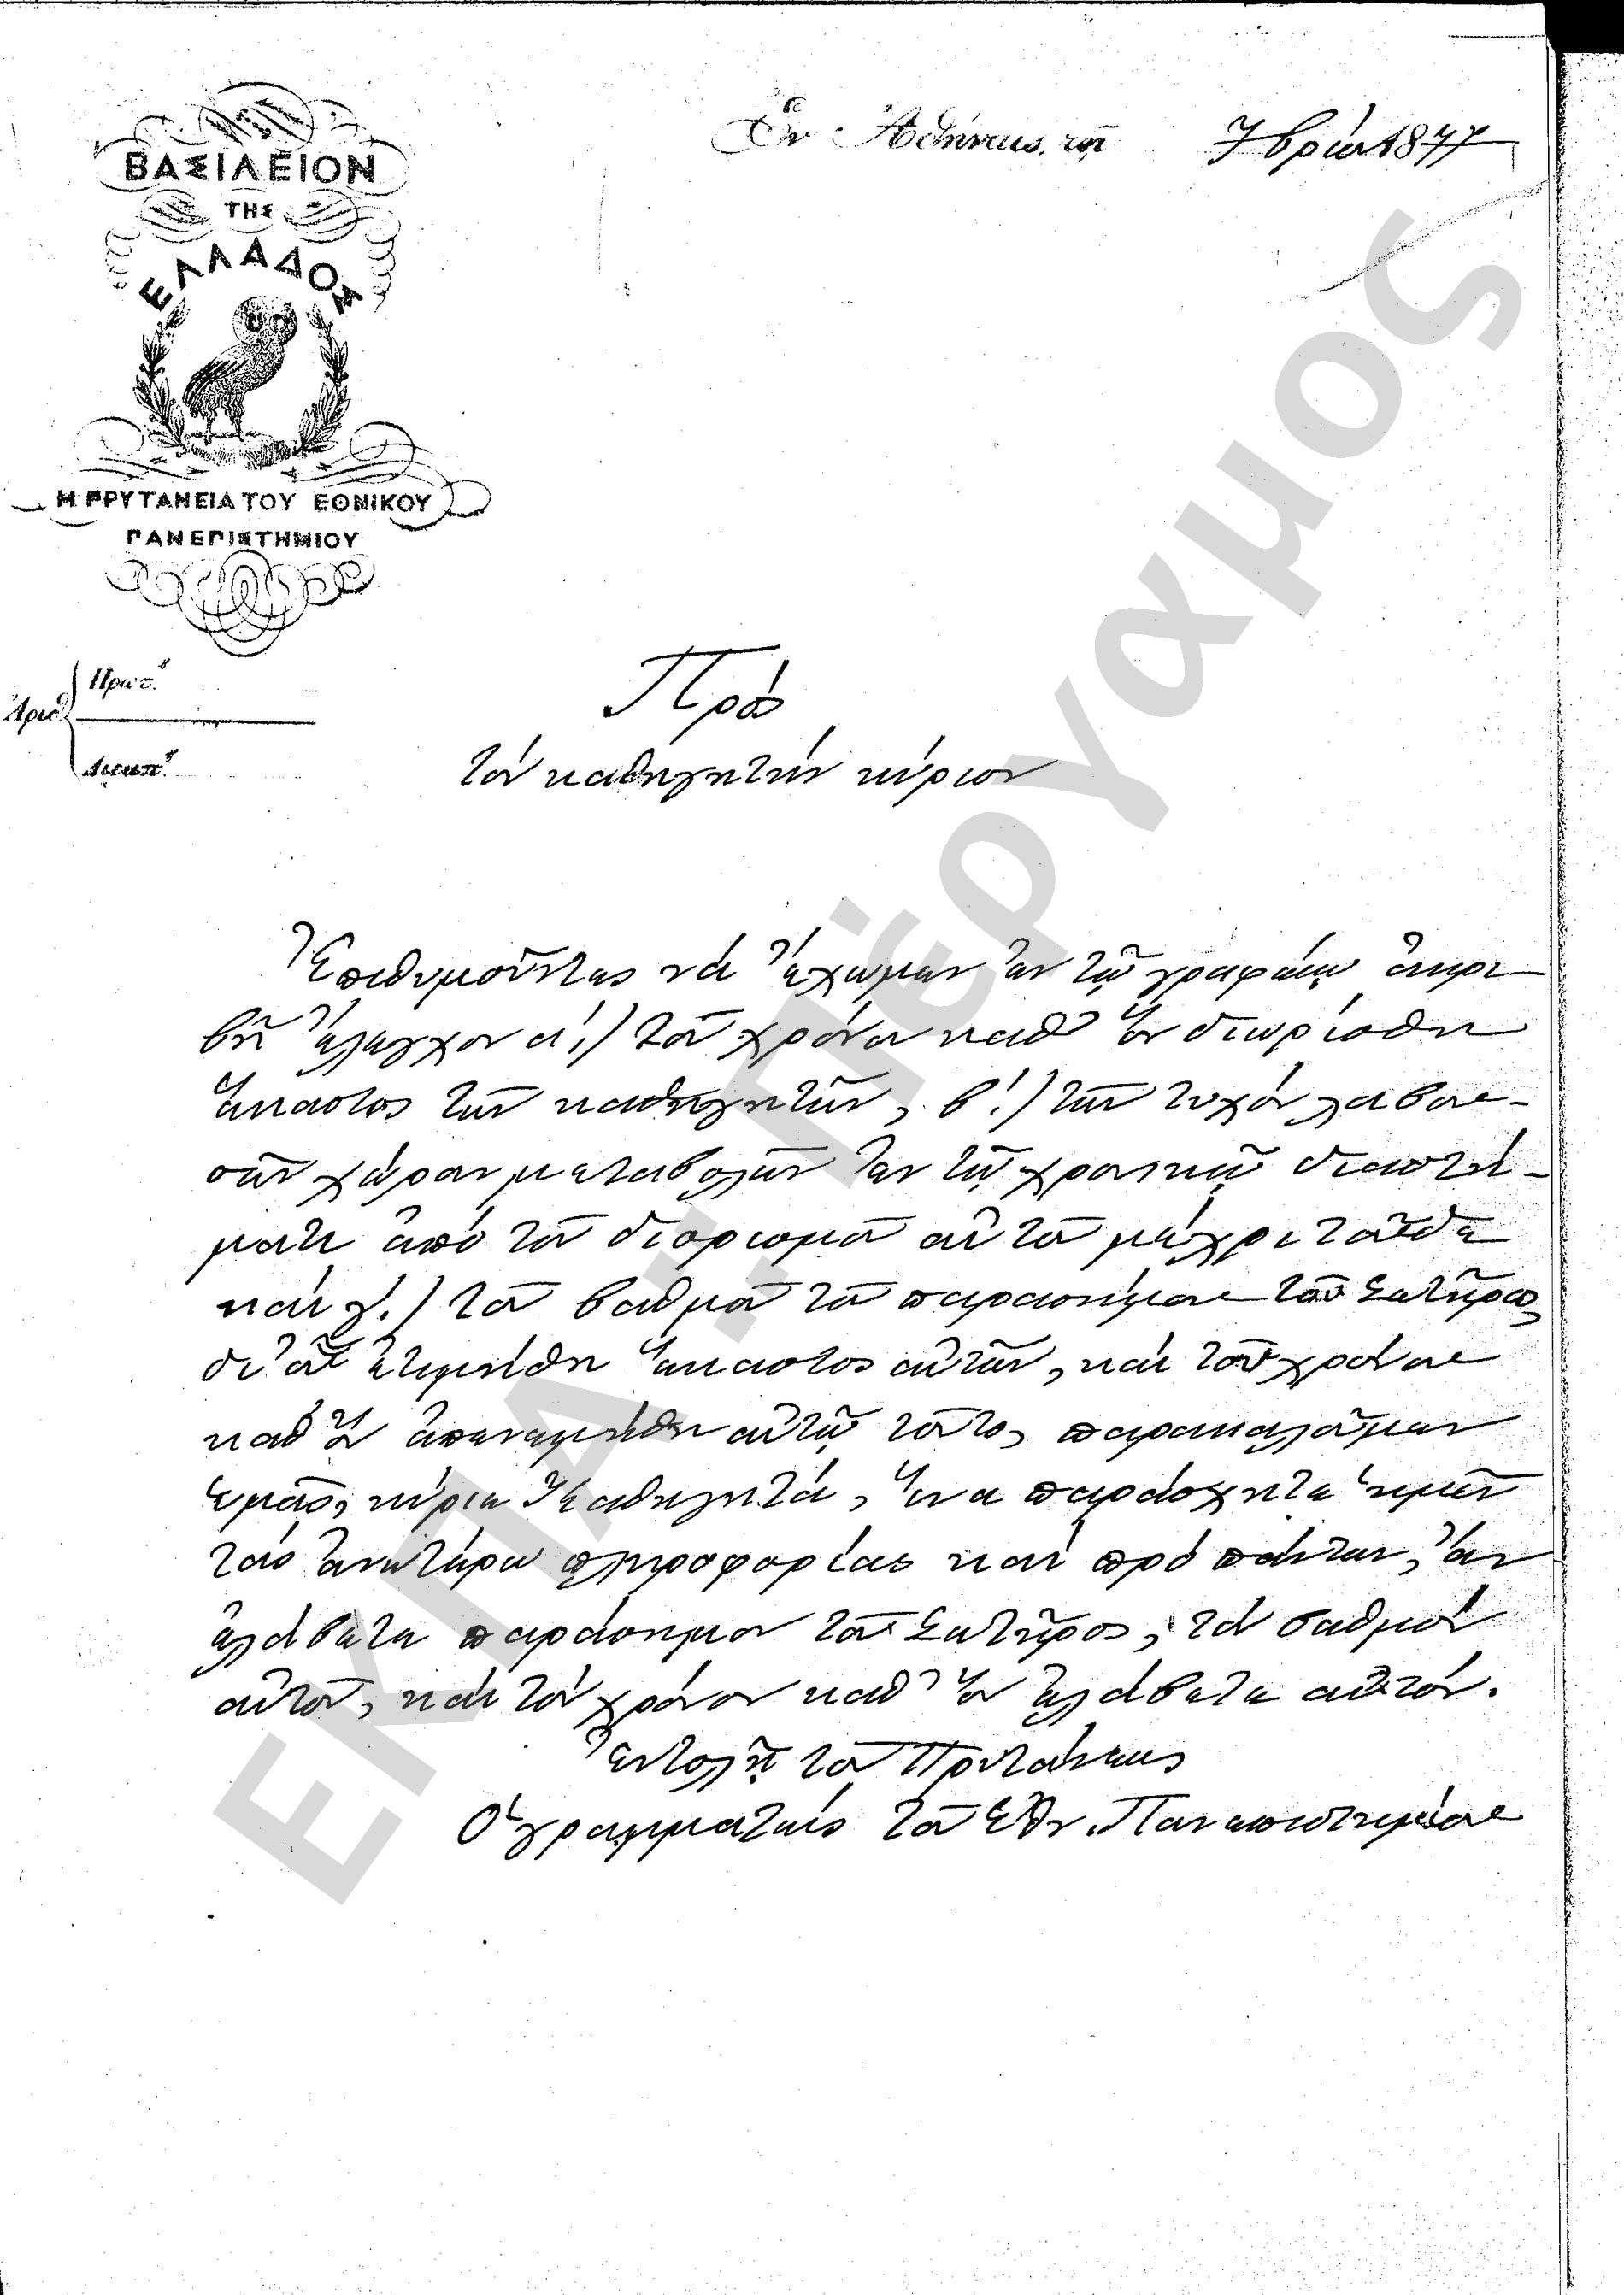 ΒΑΣΙΛΕΙΟΝ
ΤΗΣ
ΕΛΛΑΔΟΣ
Η ΠΡΥΤΑΝΕΙΑ ΤΟΥ ΕΘΝΙΚΟΥ
ΠΑΝΕΠΙΣΤΗΜΙΟΥ
Ἐν Ἀθήναις, τῇ 7βρίου 1877
Ἀριθ.
Πρωτ.
Διεκπ.
Πρὸς
τὸν καθηγητὴν κύριον
Ἐπιθυμοῦντες νὰ ἔχωμεν ἐν τῷ γραφείῳ ἀκρι-
βῆ ἔλεγχον α΄.) τοῦ χρόνου καθ' ὃν διωρίσθη
ἕκαστος τῶν καθηγητῶν, β΄.) τῶν τυχὸν λαβου-
σῶν χώραν μεταβολῶν ἐν τῷ χρονικῷ διαστή-
ματι ἀπὸ τοῦ διορισμοῦ αὐτοῦ μέχρι τοῦδε
καὶ γ΄.) τοῦ βαθμοῦ τοῦ παρασήμου τοῦ Σωτῆρος,
δι' οὗ ἐτιμήθη ἕκαστος αὐτῶν, καὶ τοῦ χρόνου
καθ' ὃν ἀπενεμήθη αὐτῷ τοῦτο, παρακαλοῦμεν
ὑμᾶς, κύριε Καθηγητά, ἵνα παράσχητε ἡμῖν
τὰς ἀνωτέρω πληροφορίας καὶ πρὸ πάντων, ἂν
ἐλάβετε παράσημον τοῦ Σωτῆρος, τὸν βαθμὸν
αὐτοῦ, καὶ τὸν χρόνον καθ' ὃν ἐλάβετε αὐτόν.
Ἐντολῇ τοῦ Πρυτάνεως
Ὁ γραμματεὺς τοῦ Ἐθν. Πανεπιστημίου
ΕΚΠΑ - Πέργαμος